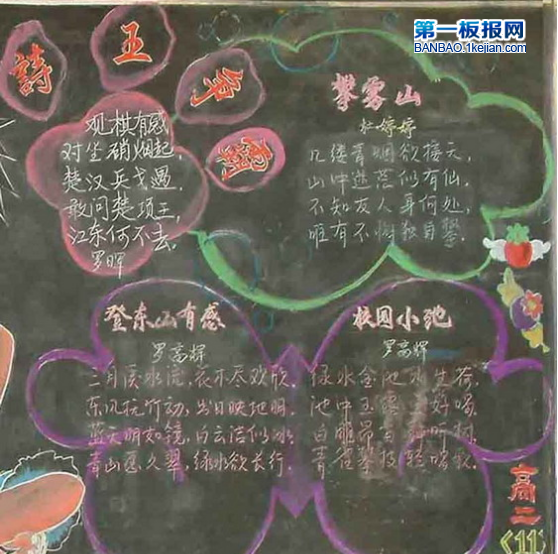 第一板报网
BANBAO.1kejian.com
詩王争霸
观棋有感
对坐硝烟起,
楚汉兵戈遇,
敢问楚项王,
江东何不去。
罗晖
攀雾山
杜婷婷
几缕青烟欲接天,
山中迷茫似有仙。
不知友人身何处,
唯有不惧独自攀。
登东山有感
罗高辉
二月溪水流,花木尽欢欣,
东风抚竹动,出日映地明。
蓝天明如镜,白云浩似冰
青山愿久翠,绿水欲长行。
校园小池
罗高辉
绿水金池 生荷,
池中玉 好唱,
白鹏昂首
青雀攀枝轻唱歌。
高二
《11》